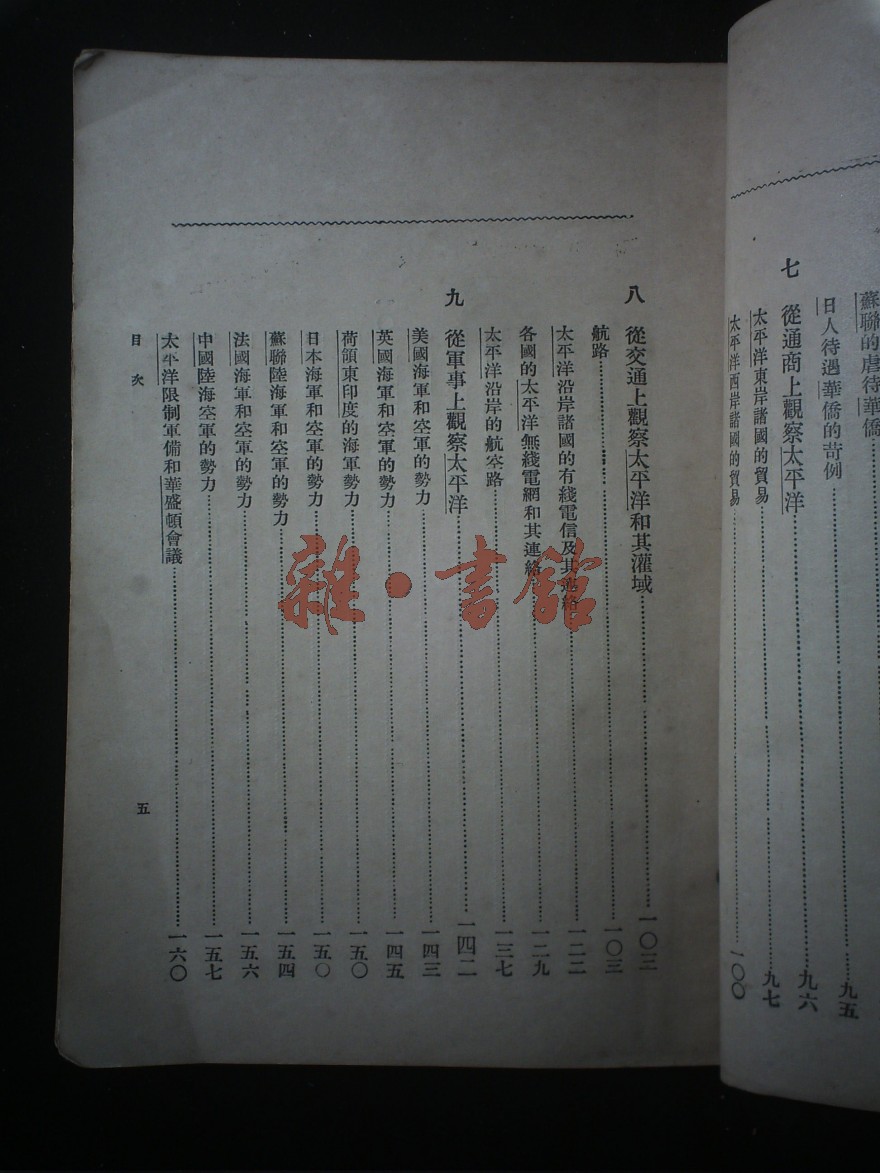 蘇聯的虐待華僑
日人待遇華僑的苛例……九五
七 從通商上觀察太平洋……九六
太平洋東岸諸國的貿易……九七
太平洋西岸諸國的貿易……一〇〇
八 從交通上觀察太平洋和其灌域……一〇三
航路……一〇三
太平洋沿岸諸國的有綫電信及其連絡……一二二
各國的太平洋無綫電網和其連絡……一二九
太平洋沿岸的航空路……一三七
九 從軍事上觀察太平洋……一四二
美國海軍和空軍的勢力……一四三
英國海軍和空軍的勢力……一四五
荷領東印度的海軍勢力……一五〇
日本海軍和空軍的勢力……一五〇
蘇聯陸海軍和空軍的勢力……一五四
法國海軍和空軍的勢力……一五六
中國陸海空軍的勢力……一五七
太平洋限制軍備和華盛頓會議……一六〇
目次 五
雜·書館